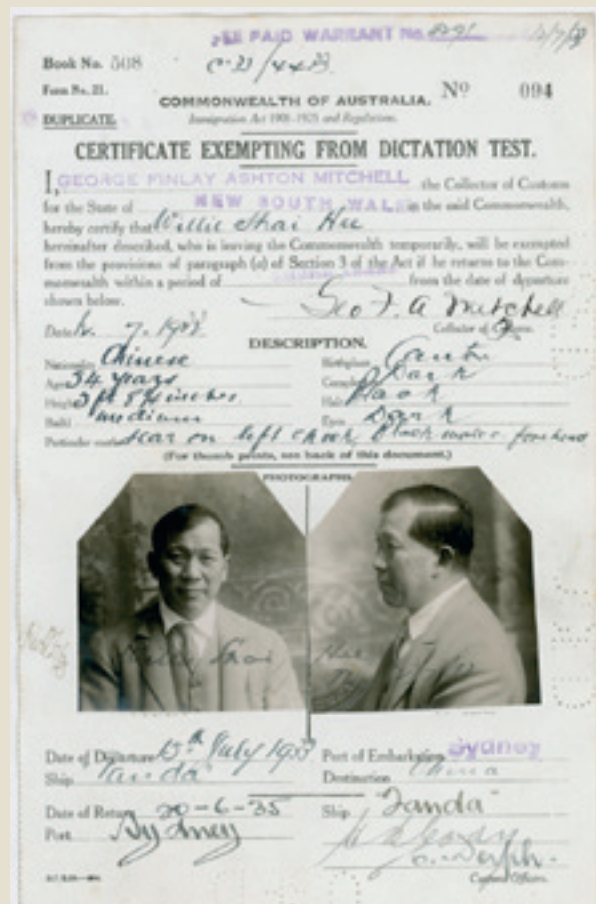 FEE PAID WARRANT No.
Book No. 508
Form No. 21.
COMMONWEALTH OF AUSTRALIA. No 094
DUPLICATE. Immigration Act 1901-1925 and Regulations.
CERTIFICATE EXEMPTING FROM DICTATION TEST.
I, GEORGE FINLAY ASHTON MITCHELL the Collector of Customs
for the State of NEW SOUTH WALES in the said Commonwealth,
hereby certify that Willie Shai Hee
hereinafter described, who is leaving the Commonwealth temporarily, will be exempted
from the provisions of paragraph (a) of Section 3 of the Act if he returns to the Com-
monwealth within a period of from the date of departure
shown below. Geo F. A Mitchell
Date Collector of Customs.
DESCRIPTION.
Nationality Chinese Birthplace Canton
Age 34 years Complexion Dark
Height 5 ft inches Hair
Build medium Eyes Dark
Particular marks scar on left cheek, Black mole forehead
(For thumb prints, see back of this document.)
PHOTOGRAPHS.
Willie Shai Hee
Date of Departure July 1933 Port of Embarkation Sydney
Ship Tanda Destination China
Date of Return 20-6-35 Ship Tanda
Port Sydney
Customs Officers.